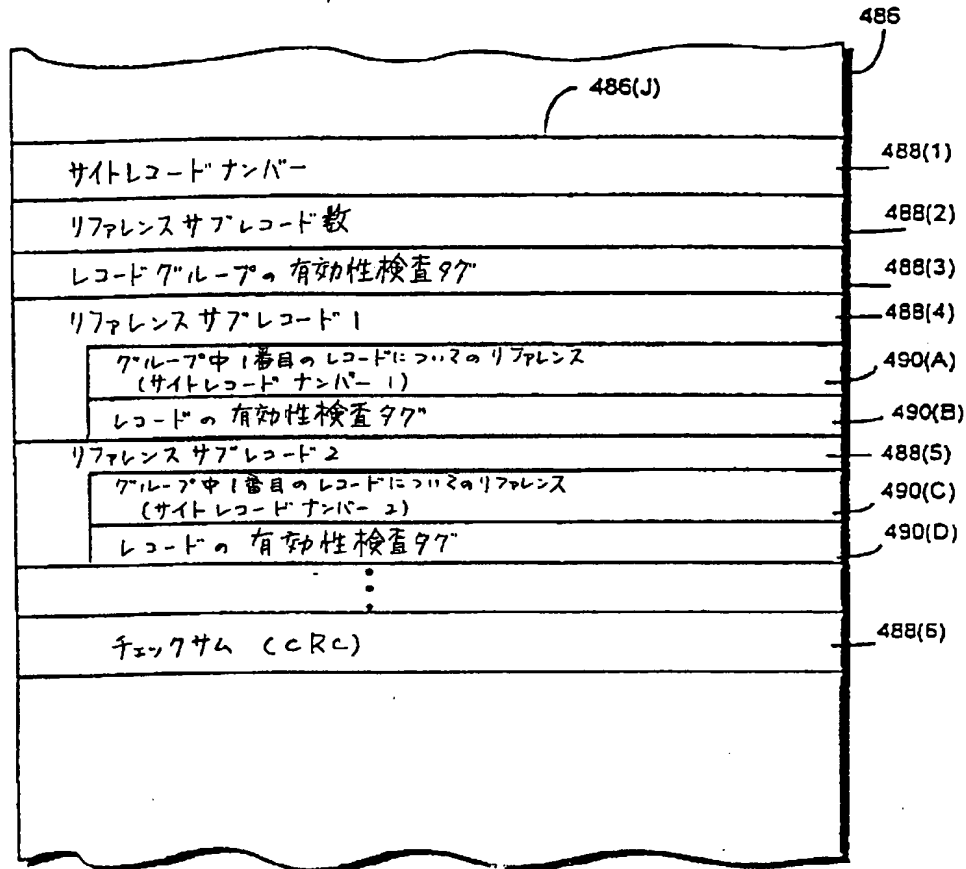 486
486(J)
サイトレコードナンバー 488(1)
リファレンスサブレコード数 488(2)
レコードグループの有効性検査タグ 488(3)
リファレンスサブレコード1 488(4)
グループ中1番目のレコードについてのリファレンス
(サイトレコードナンバー 1) 490(A)
レコードの有効性検査タグ 490(B)
リファレンスサブレコード2 488(5)
グループ中1番目のレコードについてのリファレンス
(サイトレコードナンバー 2) 490(C)
レコードの有効性検査タグ 490(D)
チェックサム (CRC) 488(6)